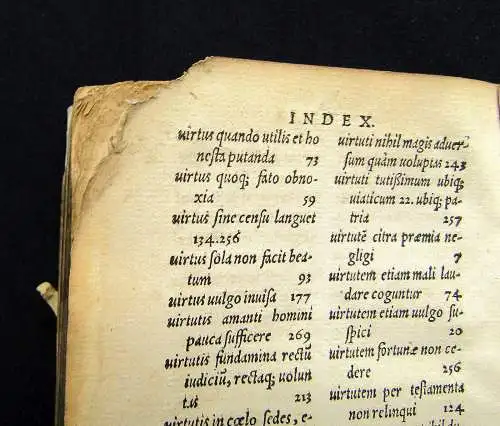 INDEX.
uirtus quando utilis et ho
nesta putanda 73
uirtus quoq; fato obno-
xia 59
uirtus sine censu languet
134.256
uirtus sola non facit bea-
tum 93
uirtus uulgo inuisa 177
uirtutis amanti homini
pauca sufficere 269
uirtutis fundamina rectū
iudiciū, rectaq; uolun
tas 213
uirtutis in cœlo sedes, e-
uirtuti nihil magis aduer
sum quàm uoluptas 243
uirtuti tutissimum ubiq;
uiaticum 22. ubiq; pa-
tria 257
uirtutē citra præmia ne-
gligi 7
uirtutem etiam mali lau-
dare coguntur 74
uirtutem etiam uulgo su-
spici 20
uirtutem fortunæ non ce-
dere 256
uirtutem per testamenta
non relinqui 124